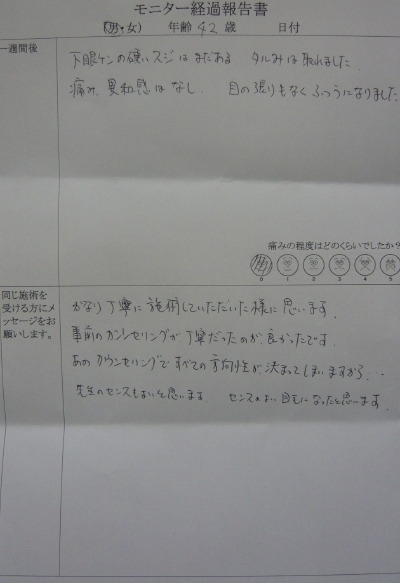 モニター経過報告書
(男・女) 年齢 42 歳 日付
一週間後
下眼ケンの硬いスジはまだある タルみは取れました
痛み、異和感はなし. 目の張りもなくふつうになりました
痛みの程度はどのくらいでしたか?
0 1 2 3 4 5
同じ施術を
受ける方にメ
ッセージをお
願いします。
かなり丁寧に施術していただいた様に思います.
事前のカンセリングが丁寧だったのが、良かったです.
あのカウンセリングですべての方向性が決まってしまいますから...
先生のセンスもよいと思います. センスのよい目もになったと思います.